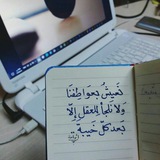 نَعيشُ بِعواطِفنا
وَلا نَلجأ لِلعَقلِ إلّا
بَعدَ كلّ خَيبةٍ